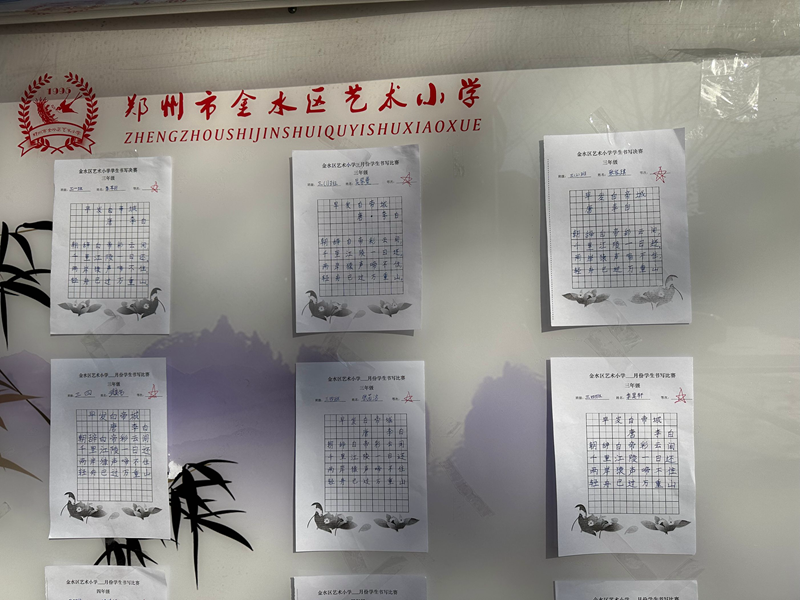 1995
郑州市金水区艺术小学
ZHENGZHOUSHIJINSHUIQUYISHUXIAOXUE
金水区艺术小学学生书写决赛
三年级
早发白帝城
唐 李白
朝辞白帝彩云间
千里江陵一日还
两岸猿声啼不住
轻舟已过万重山
金水区艺术小学三月份学生书写比赛
三年级
早发白帝城
唐·李白
朝辞白帝彩云间
千里江陵一日还
两岸猿声啼不住
轻舟已过万重山
金水区艺术小学学生书写决赛
三年级
早发白帝城
唐 李白
朝辞白帝彩云间
千里江陵一日还
两岸猿声啼不住
轻舟已过万重山
金水区艺术小学__月份学生书写比赛
三年级
早发白帝城
唐 李白
朝辞白帝彩云间
千里江陵一日还
两岸猿声啼不住
轻舟已过万重山
金水区艺术小学__月份学生书写比赛
三年级
早发白帝城
唐 李白
朝辞白帝彩云间
千里江陵一日还
两岸猿声啼不住
轻舟已过万重山
金水区艺术小学__月份学生书写比赛
三年级
早发白帝城
唐 李白
朝辞白帝彩云间
千里江陵一日还
两岸猿声啼不住
轻舟已过万重山
金水区艺术小学__月份学生书写比赛
四年级
金水区艺术小学__月份学生书写比赛
金水区艺术小学__月份学生书写比赛